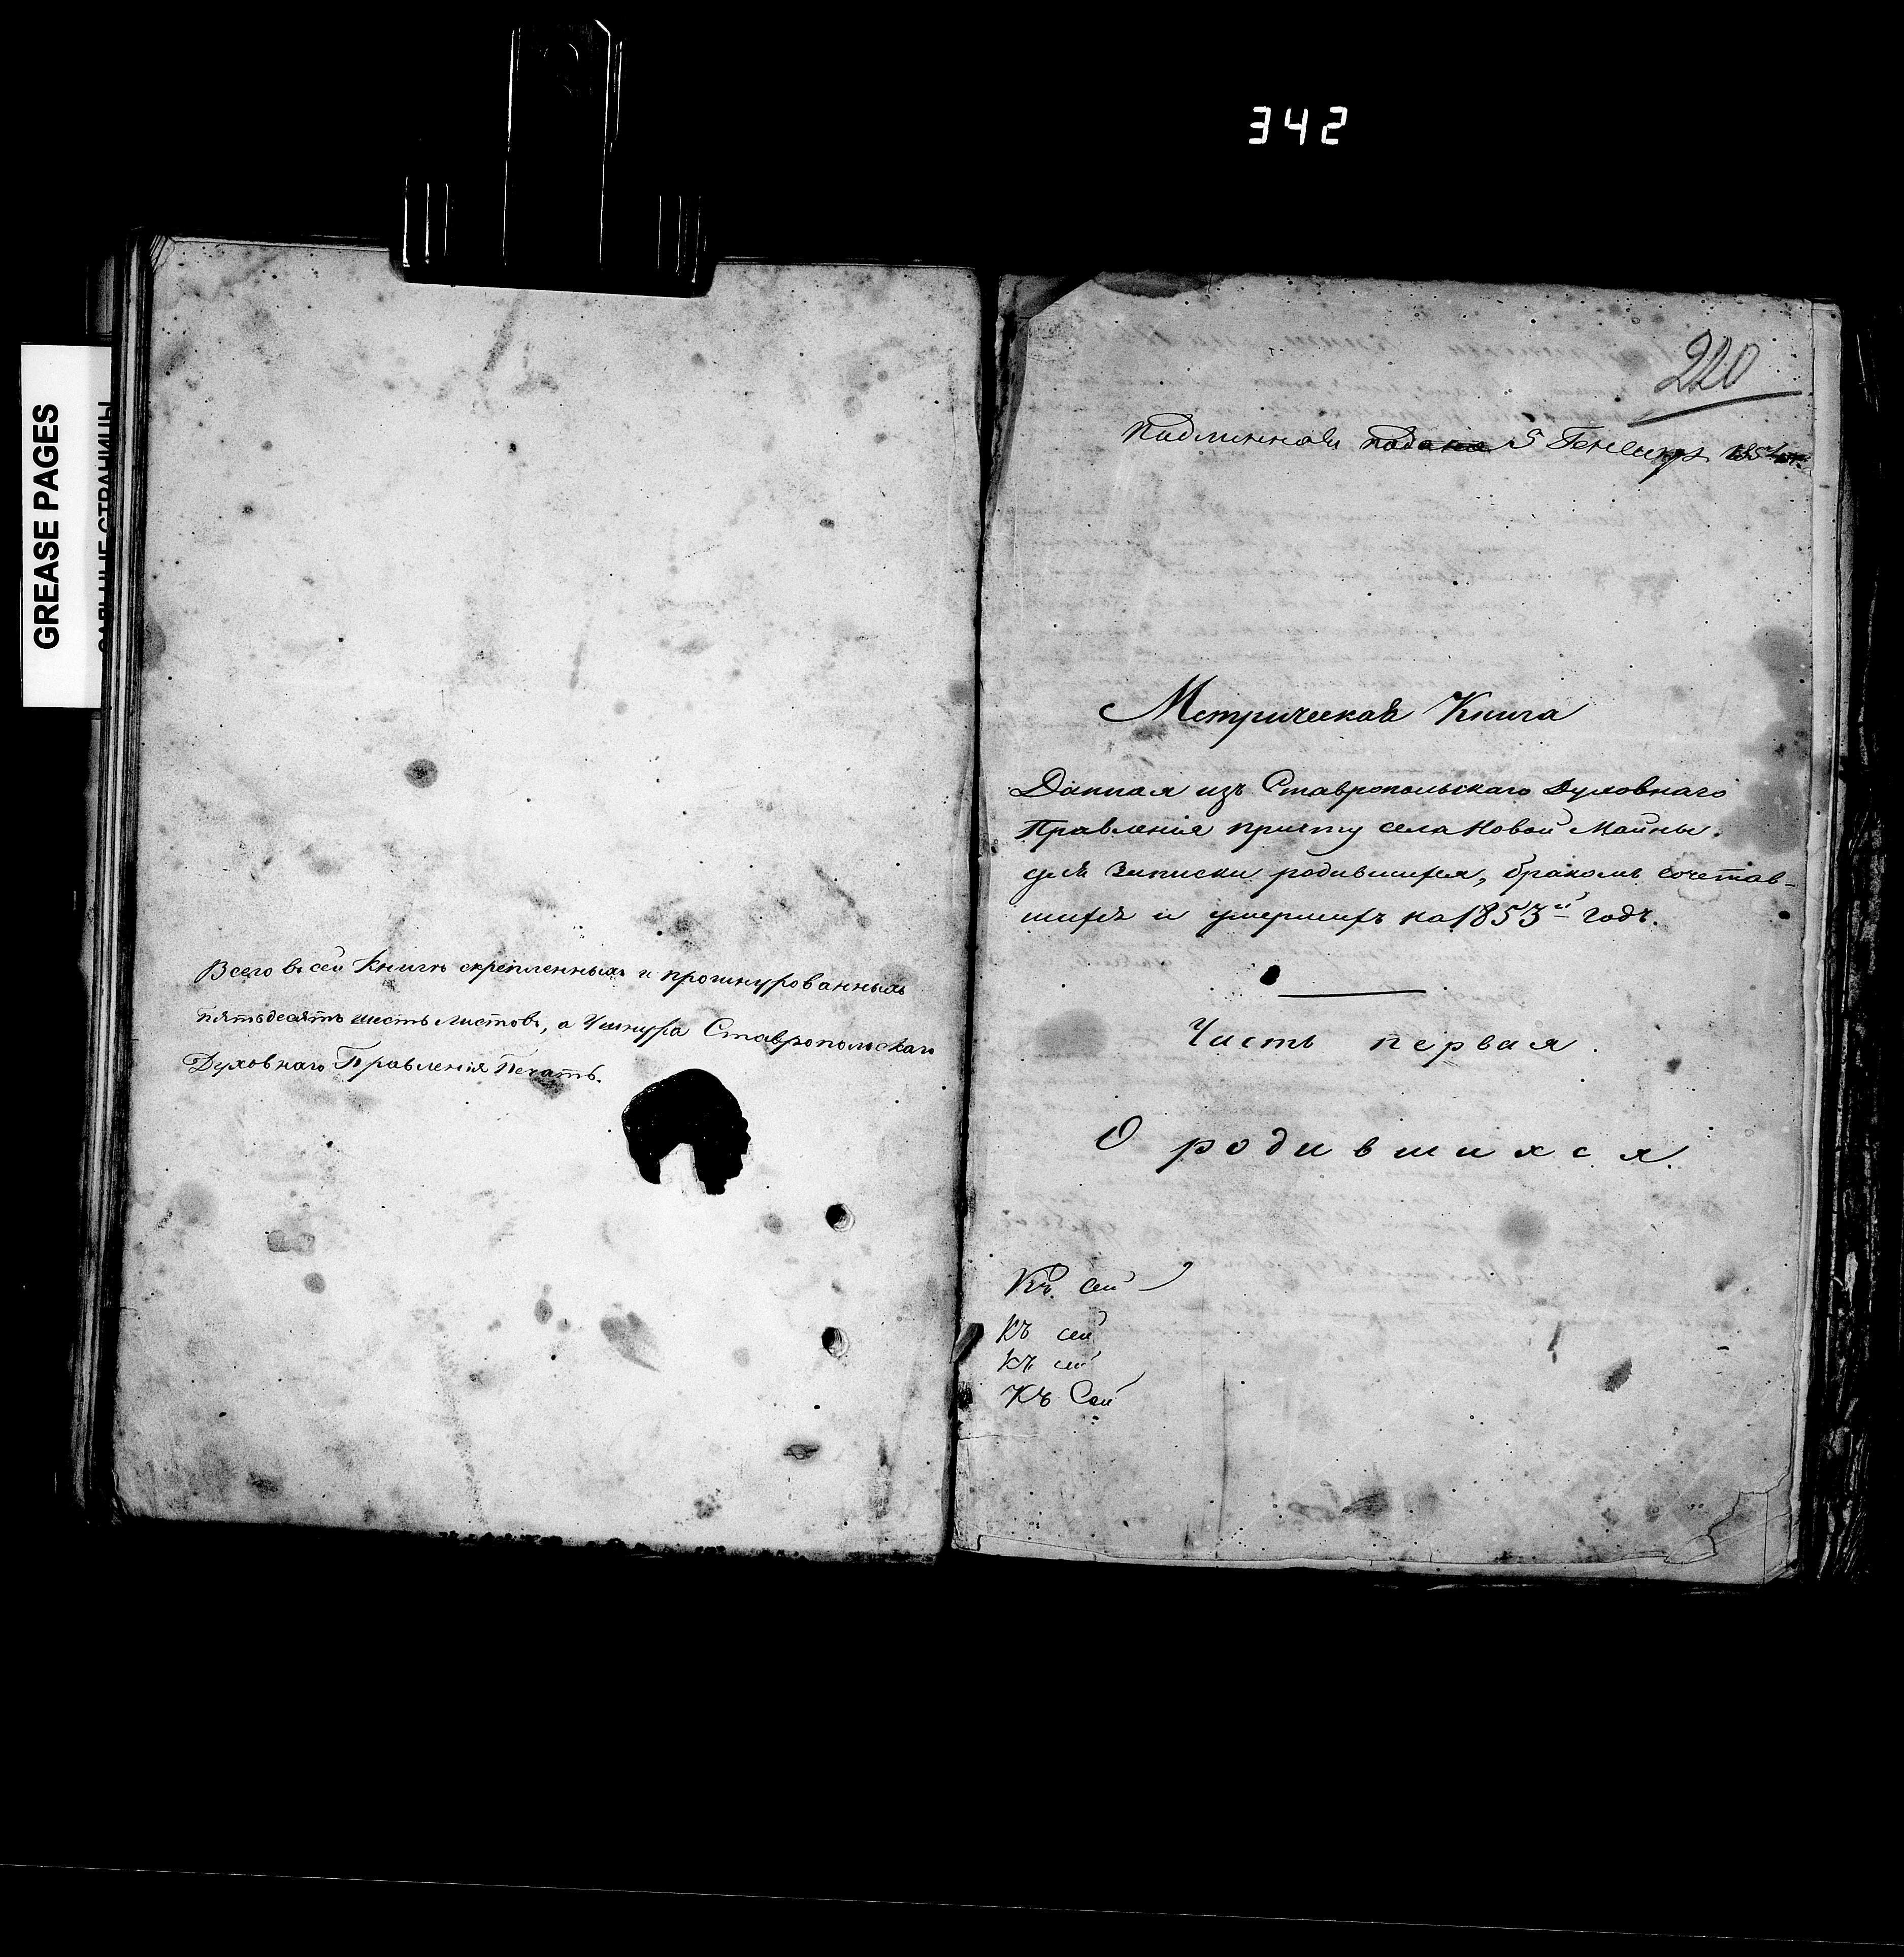 342
GREASE PAGES
САЛЬНЫЕ СТРАНИЦЫ
Всего въ сей книгѣ скрѣпленныхъ и прошнурованныхъ
пятьдесятъ шесть листовъ, а у шнура Ставропольскаго
Духовнаго Правленія Печать.
220
Подлинная подана 5 Генваря
Метрическая Книга
Данная изъ Ставропольскаго Духовнаго
Правленія причту села Новой Майны.
для записки родившихся, бракомъ сочетав-
шихся и умершихъ на 1853й годъ.
Часть первая.
О родившихся.
Къ сей
Къ сей
Къ сей
Къ Сей